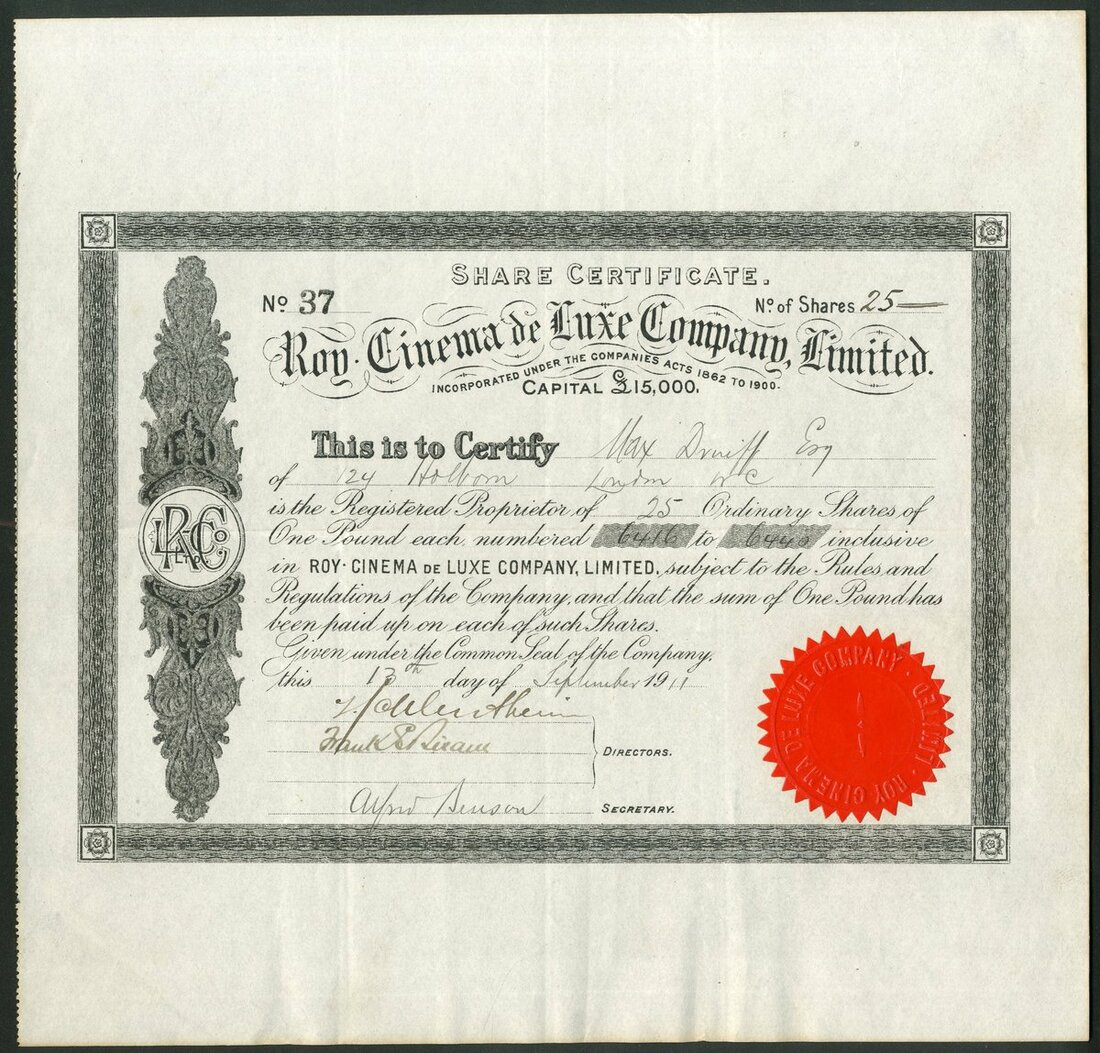 SHARE CERTIFICATE.
No 37
No. of Shares 25
Roy-Cinema de Luxe Company, Limited.
INCORPORATED UNDER THE COMPANIES ACTS 1862 TO 1900.
CAPITAL £15,000.
This is to Certify Max Druiff Esq
of 124 Holborn London W C
is the Registered Proprietor of 25 Ordinary Shares of
One Pound each, numbered 6416 to 6440 inclusive
in ROY-CINEMA DE LUXE COMPANY, LIMITED, subject to the Rules and
Regulations of the Company, and that the sum of One Pound has
been paid up on each of such Shares.
Given under the Common Seal of the Company,
this 13th day of September 1911
Frank E Biram
DIRECTORS.
Alfred Benson SECRETARY.
ROY CINEMA DE LUXE COMPANY. LIMITED